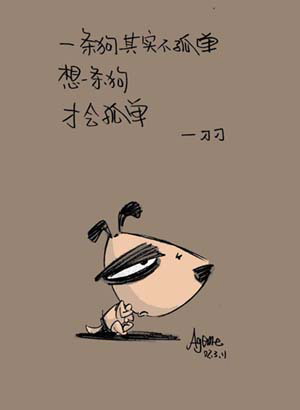 一条狗其实不孤单
想一条狗
才会孤单
一刃
Agome
12.3.11